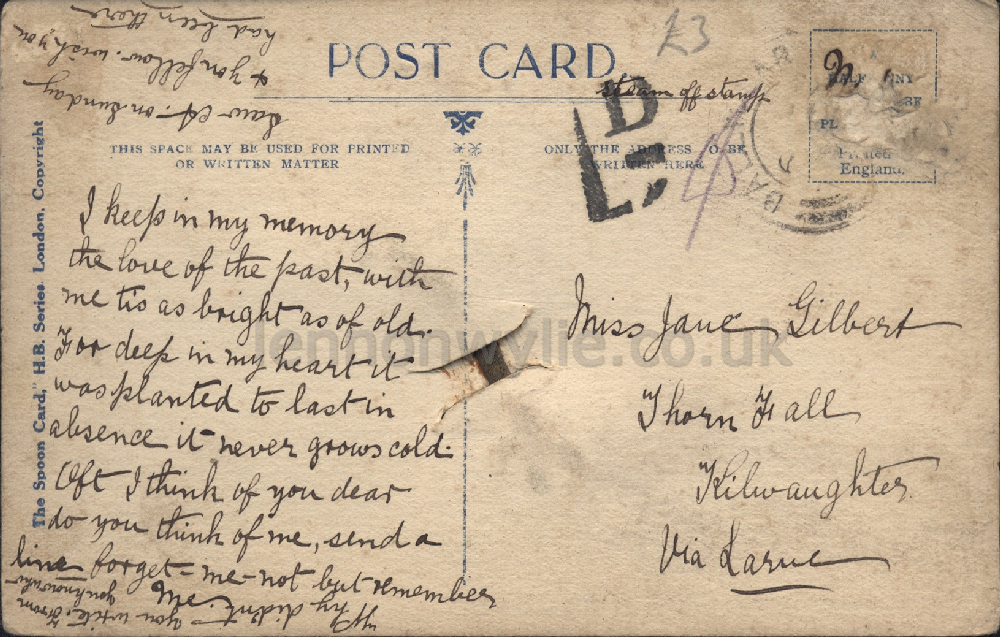 POST CARD
£3
steam off stamp
D
L
THIS SPACE MAY BE USED FOR PRINTED
OR WRITTEN MATTER
ONLY THE ADDRESS O BE
WRITTEN HERE
PL
Printed
England.
The Spoon Card," H.B. Series. London, Copyright
I keep in my memory
the love of the past, with
me tis as bright as of old.
For deep in my heart it
was planted to last in
absence it never grows cold.
Oft I think of you dear
do you think of me, send a
line forget-me-not but remember
me.
Why didn't
you write. From
you know who
Saw on Sunday
& yon fellow. wish you
had been there
Miss Jane Gilbert
Thorn Hall
Kilwaughter
Via Larne
lennonwylie.co.uk